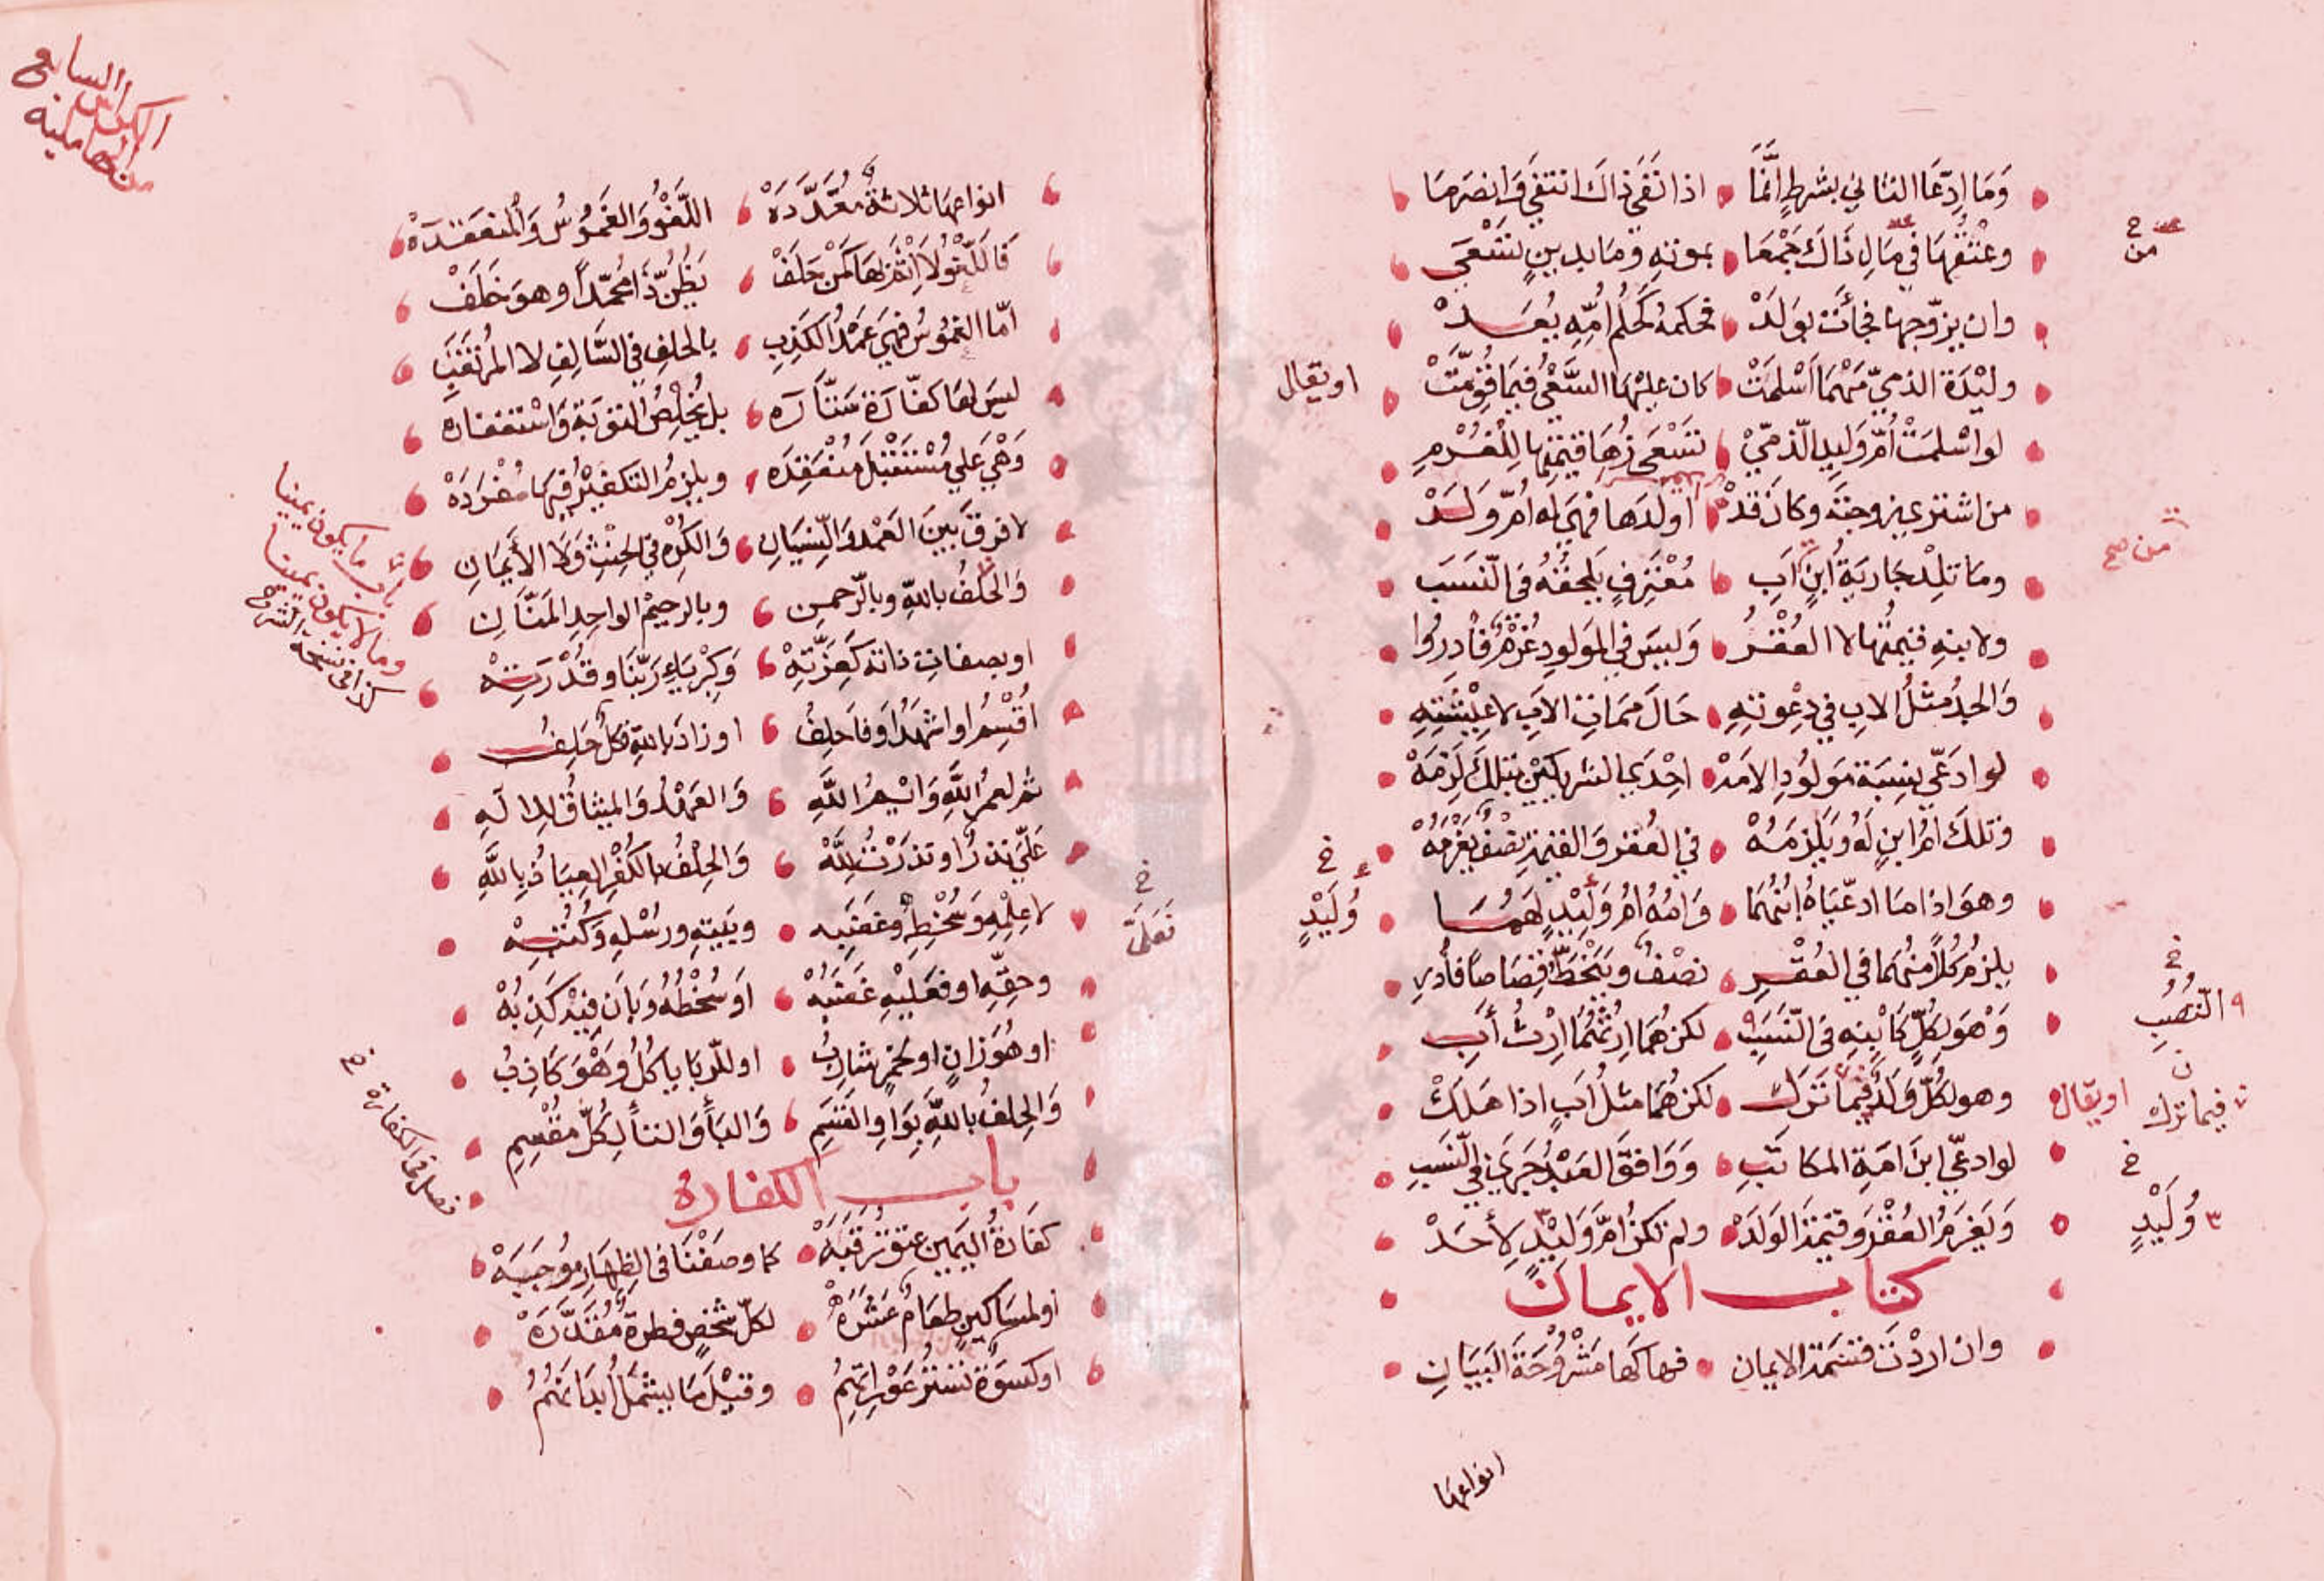 وَمَا اِدِّعَا الثانِي بشرطٍ اِنَّمَا اذا نَفَى ذاكَ انتفى وَانصَرَمَا
وعِتْقُهَا فِي مَالِ ذَاكَ جَمْعَا بموتهِ وَمَا بدينٍ تَسْعَى
وان يزوّجها فجأَتْ بولَدْ فحكمهُ كَحُكْمِ اُمِّهِ يُعَدْ
وليْدَة الذميّ مَهْمَا اَسْلمَتْ كان عليْهَا السَّعْيُ فيمَا قُوِّمَتْ
اويقال
لو اسْلمَتْ اُمُّ وَلِيدِ الذّمّيْ تَسْعَى زُهَا قيمَتِهَا لِلْغُرْمِ
من اشترى زوجتَه وكان قَدْ اولَدها فهيَ له اُمّ وَلَدْ
وما تلِدْ جَاريَةُ ابنٍ اَبِ مُعْتَرِفٍ يَلحقهُ في النّسَب
من صح
ولابنهِ قيمتُها لا العُقْرُ وَليسَ في المَولودِ غُرْمٌ فادرُوا
وَالجدُ مثلُ الاب في دِعْوتِهِ حَالَ ممَاتِ الاَبِ لا غِيْبَتِهِ
لو ادعَى نِسبَة مَولُودِ الامَهْ احْدى الشريكَيْنِ بتلكَ لَزِمَهْ
وتلكَ امُّ ابنٍ لَهُ وَيَلْزَمُهْ في العُقر وَالقيمَة نِصْفٌ يَغْرَمُهْ
وهوَ اذا ما ادعّيَاهُ اِبنُهُمَا وَامُهُ امُّ وَلِيْدٍ لَهُمَا
وُلَيْدٍ خ
يلزمُ كُلًا منهُمَا في العُقْرِ نصْفٌ وَيَنْحَطُّ قِصَاصًا فأدرِ
وَهْوَ لِكُلٍّ كَابْنِهِ في النّسَبِ لكن هُمَا اِرْثُهُمَا اِرْثُ أَبِ
النّصُبِ خ
وهو لكُلٍّ وَلَدٌ فيمَا تَرَكْ لكن هُمَا مثلُ اَبٍ اذا هَلَكْ
فيما ترك اويقال
لو ادعّى ابنَ امَةِ المكاتَبِ وَوَافقَ العَبْدُ جَرَى في النّسَبِ
وَيَغرَمُ العُقْرَ وَقيمَةَ الوَلَدْ ولم تكنْ امَّ وَلِيْدٍ لِأحَدْ
وُلَيْدٍ خ
كتاب الايمان
وان اردْتَ قسْمَة الايمان فهاكَها مَشْرُوحَةَ البَيَانِ
انواعها
الكراس السابع
من
انواعهَا ثلاثةٌ مُعَدَّدَهْ اللّغْوُ وَالغَمُوْسُ وَالمُنعَقدَهْ
فَاللّغْوُ لا اِثْمَ لهَا كَمَنْ حَلَفْ يَظُنُّ ذَا مُحَمّدًا وهوَ خَلَفْ
امّا الغمُوسُ فهْيَ عَمْدُ الكَذِبِ بالحلفِ في السَّالِفِ لا المُرْتَقَبِ
ليسَ لهَا كفّارَة سَتّارَه بل يُخلِصُ التوبَةَ وَاسْتغفارَه
وَهْيَ عَلى مُسْتَقْبَلٍ مُنعَقِدَه ويلزمُ التكفيرُ فيهَا مُفْرَدَهْ
لا فرقَ بَينَ العَمْدِ وَالنّسْيَانِ وَالكُرْهِ في الحِنْثِ وَلا الأَيمَانِ
باب ما يكون يمينا
وما لا يكون يمينا
كذا في نسخة الشرح
وَالحَلْفُ بالله وبالرّحمن وبالرحيم الواحِدِ المَنّانِ
او بصفاتِ ذاته كَعِزّتِهْ وَكِبْرِيَاءِ رَبّنَا وقُدْرَتِهْ
اُقْسِمُ او اشهَدُ اَو فاَحلِفُ او زادَ بالله فكُلٌ حَلِفُ
ثم لعمرُ اللهِ وَايْمُ اللهِ وَالعَهْدُ وَالميثاقُ للاِلهِ
عَلَيّ نذرٌ او نذرْتُ لِلّهْ وَالحِلْفُ بالكُفْرِ العِيَاذُ بِاللهِ
لا عِلمِهِ وَسُخْطِهِ وغَضَبِه وبَيتِهِ ورُسْلهِ وَكُتُبِهْ
وحقِّهِ او فعَليْهِ غَضَبُهْ اَو سُخْطُهُ وَبانَ فيْهِ كَذِبُهْ
او هُوَ زانٍ او لخمرٍ شارِبُ او للرّبَا ياكُلُ وَهْوَ كَاذِبُ
وَالحِلفُ باللهِ بِوَاوِ القَسَمِ وَالبَأِ وَالتأ لِكُلِّ مُقْسِمِ
باب الكفارة
فصل في الكفارة خ
كفَارَةُ اليَمِين عِتقُ رَقبَهْ كما وصَفْنَا في الظِهَارِ مُوْجَبَهْ
او لمسَاكينٍ طعَامٌ عَشْرَهْ لكلّ شخْصٍ فطرةٌ مُقَدّرَهْ
او كسْوَةٌ تَسْتُرُ عَوْرَاتِهِمُ وقيْلَ مَا يشمَلُ أبدانَهُمُ